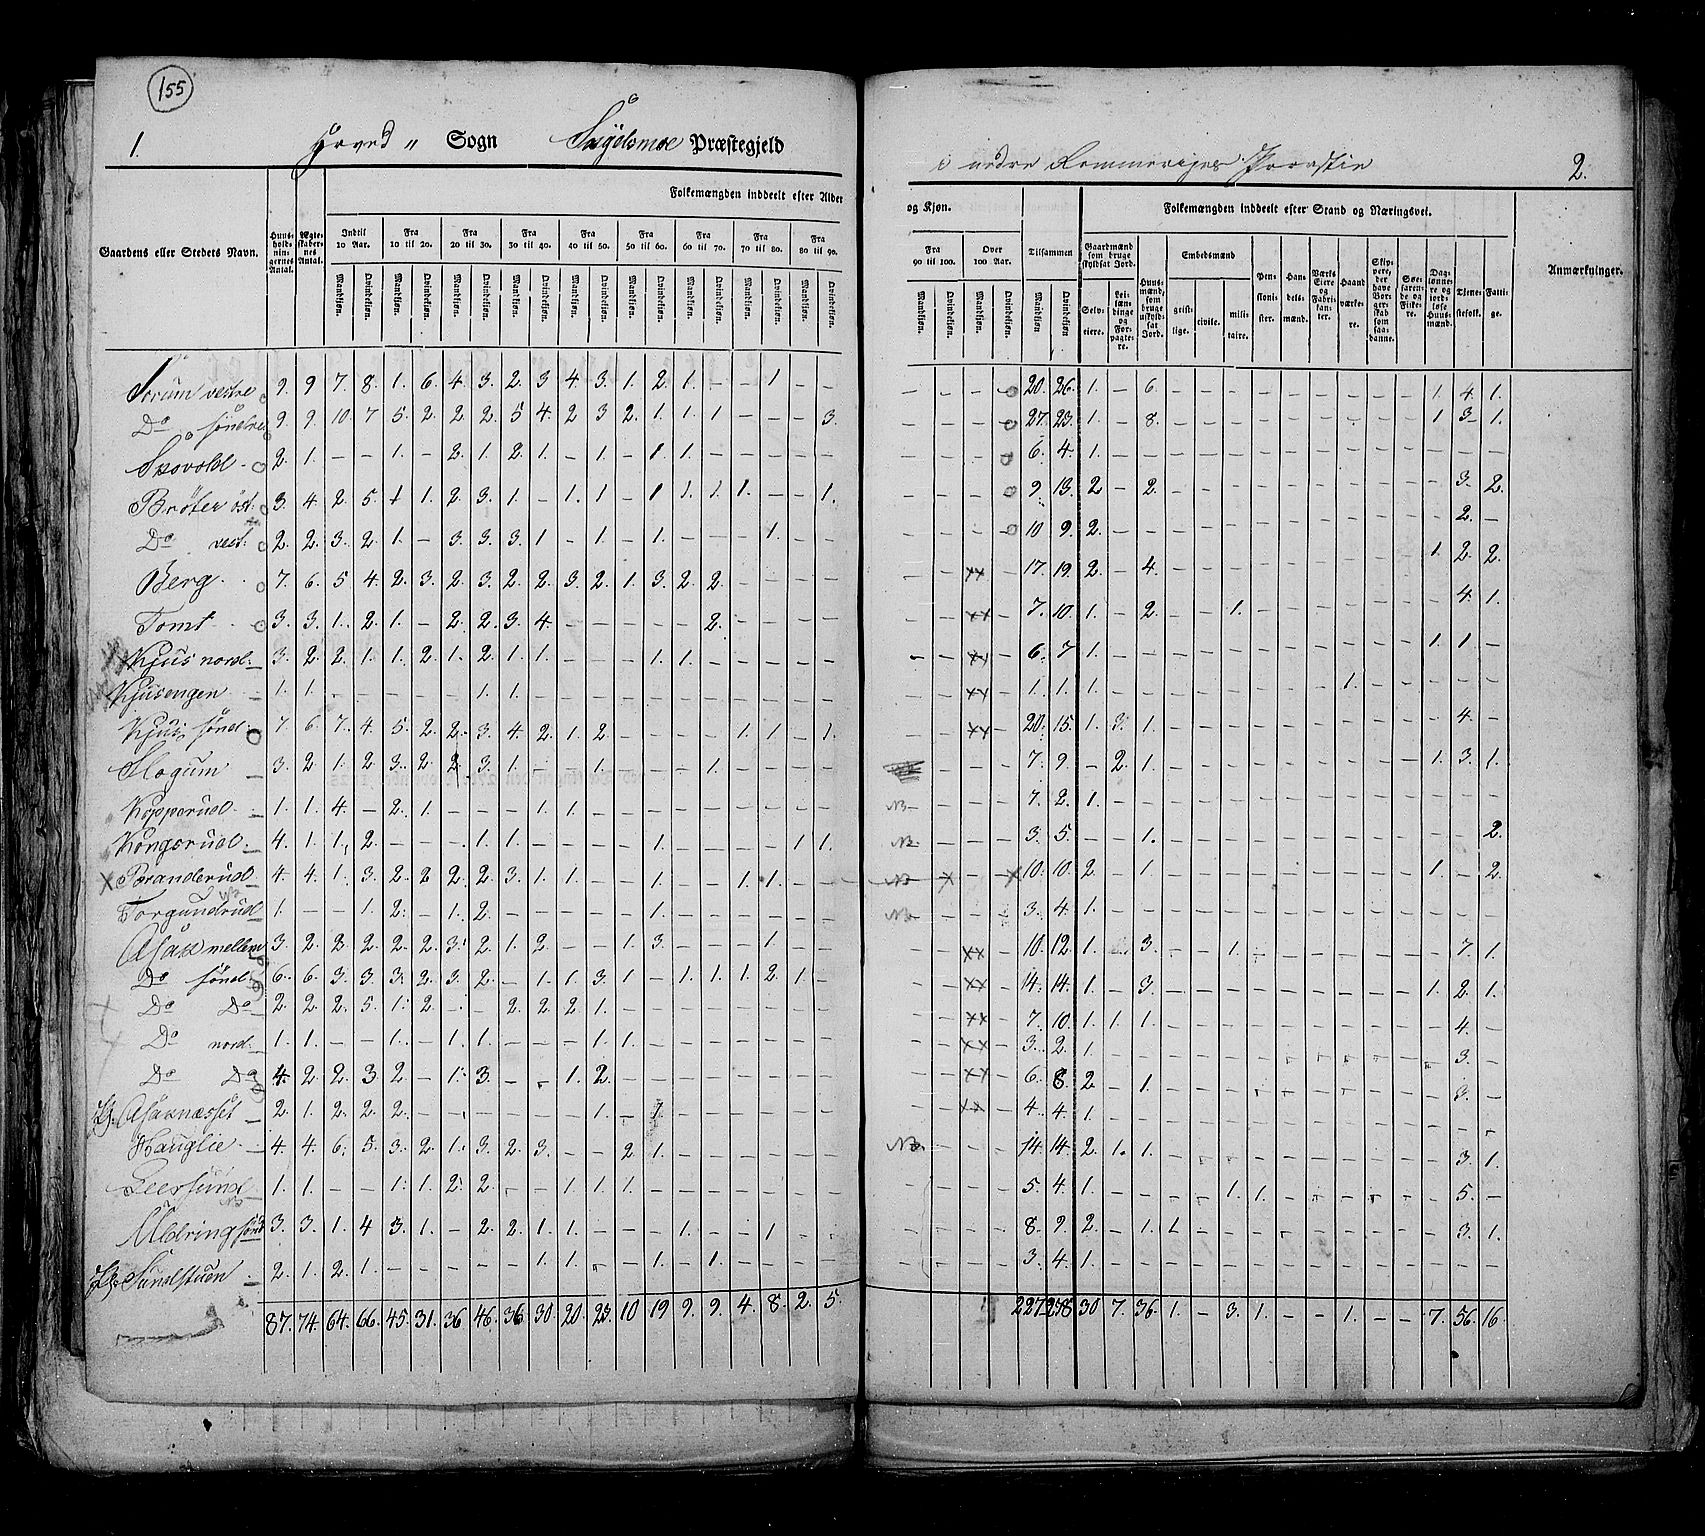 155
1. Hoved „ Sogn Præstegjeld
i nedre Rommeriges Provstie 2.
Folkemængden inddeelt efter Alder
og Kjøn. Folkemængden inddeelt efter Stand og Næringsvei.
Gaardens eller Stedets Navn. Huus-hold-nin-gernes Antal. Ægte-skaber-nes Antal. Indtil 10 Aar. Fra 10 til 20. Fra 20 til 30. Fra 30 til 40. Fra 40 til 50. Fra 50 til 60. Fra 60 til 70. Fra 70 til 80. Fra 80 til 90.
Fra 90 til 100. Over 100 Aar. Tilsammen Gaardmænd som bruge skyldsat Jord. Huus-mænd, som bruge uskyld-sat Jord. Embedsmænd Pen-sioni-ster. Han-dels-mænd. Værks-Eiere og Fabri-kanter. Haand værke-re. Skip-pere, der have Bor-ger-skab som saa-danne. Søe-faren-de og Fiske-re. Dag-lønne-re og jord-løse Huus-mænd. Tjene-stefolk. Fatti-ge. Anmærkninger.
Mandkjøn. Qvindekjøn. Selv-eiere. Lei-læn-dinge og For-pagte-re. geist-lige. civile. mili-taire.
Sorum vestre 9. 9 7. 8. 1. 6. 4. 3. 2. 3 4. 3. 1. 2. 1. – – 1. – – – – – – 20. 26. 1. – 6. – – – – – – – – – 1. 4. 1.
Do søndre 9. 9. 10. 7 5. 2. 2. 2. 5 4. 2 3 2. 1. 1. 1 – – – 3. – – – – 27. 23. 1. – 8. – – – – – – – – – 1 3. 1.
Skovold. 2. 1. – – 1. – 2. 1. 2. 1. – 1. – 1. 1. – – – – – 6. 4. 1.
Brøter øst. 3. 4. 2. 5. 1 1. 2. 3. 1. – 1. 1. – 1 1. 1. 1. – – 1. 9. 13. 2 – 2. 3. 2.
Do vest. 2. 2. 3. 2. 1. – 3. 3. 3. 1 – 1. – 1. – – – 1. – – 10 9. 2. 2. –
Berg. 7. 6. 5 4. 2. 3. 2. 3. 2. 2. 3. 2. 1. 3. 2. 2. – – – – xx 17. 19. 2. – 4. 1. 2. 2.
Tomt. 3. 3. 1. 2. 1. – 2. 2. 3. 4. – – – – – 2. xx 7. 10. 1. – 2. – – 1. 4. 1.
Kjus nord. 3. 2. 2. 1. 1. 2. 1. 2. 1. 1. – – – 1. 1. – xx 6. 7 1. 1. 1. –
Kjusengen 1. 1. 1. 1. xx 1. 1. 1. 1.
Kjus sønd. 7. 6. 7. 4. 5. 2. 2. 3. 4. 2. 1. 2. – – – – 1. 1. – 1. xx 20. 15. 1. 3. 1. 4. –
Slogum 3. 2 1. 2. 3. 2. 2. 3. 1. – – 1. – – – 1. 7. 9. – 2. 1. 1. 3. 1.
Kopperud. 1. 1. 4. – 2. 1. – – – 1. 1. NB – 7. 2. 1.
Kongsrud. 4. 1. 1. 2. – – – 1. 1. – – – – 1. – – – – 1 1. NB 3. 5. – – 1. 2.
x Branderud. 4. 4. 1. 3. 2. 2. 2. 2. 3. 1. 1. – – 1. – – 1. 1. – – NB x x 10. 10. 2. – 1. 1. – 2.
Torgundrud NB 1. – – 1. 2. – 1. 2. – – – – – 1. NB 3. 4. 1.
Asak mellem 3. 2. 2. 2. 2. 2. 3. 2. 1. 2 – – 1. 3. – – – 1. xx 10. 12. 1. 3. – – 1. 7. 1.
Do sønd. 6. 6. 3. 3. 3. 2. 3. 2. – 1. 1. 3. 1. – 1. 1. 1. 2. 1. – xx 14. 14. 1. – 3. 1. 2. 1.
Do Do 2. 2. 2. 5. 1. 2. – – 2. 2. 2 1. xx 7. 10. 1. 1. 1. 4. –
Do nord. 1. 1. – – 1. – 1. 1. – – – 1. 1. xx 3. 2. 1. 3. –
Do Do 4. 2. 2. 3. 2. – 1. 3. – – 1. 2. xx 6. 8. 2. – 1. 3. –
Asaknæsset 2. 1. 2. 2. 2. – – – – – – 1. – 1. xx 4. 4. 1.
Hauglie 4. 4. 6. 5. 3. 2. 1. 3. 2. 3. – – 2. 1. NB 14. 14. 2. 1. 1. 3. 1.
Leersund NB 1. 1. – – 1. 1. 2. 2. – – 1. 1. 1. 5. 4. 1. 1. 1. 5. –
Uldring sønd 3. 3. 1. 4. 3. 1. – 2. 2. 1. 1. – – – 1. – – 1 8. 9. 2. – 1. 1. 3. 1.
Sundstuen 2. 1. 2. 1. – – – – – 1. 1. – – 1. – 1. 3. 4. 1.
87. 74. 64. 66. 45. 31. 36 46. 36. 30. 20. 23. 10 19 9. 9. 4. 8. 2. 5. 227. 238. 30 7. 36. 1. – 3. 1. – – 1. – – 7. 56. 16.